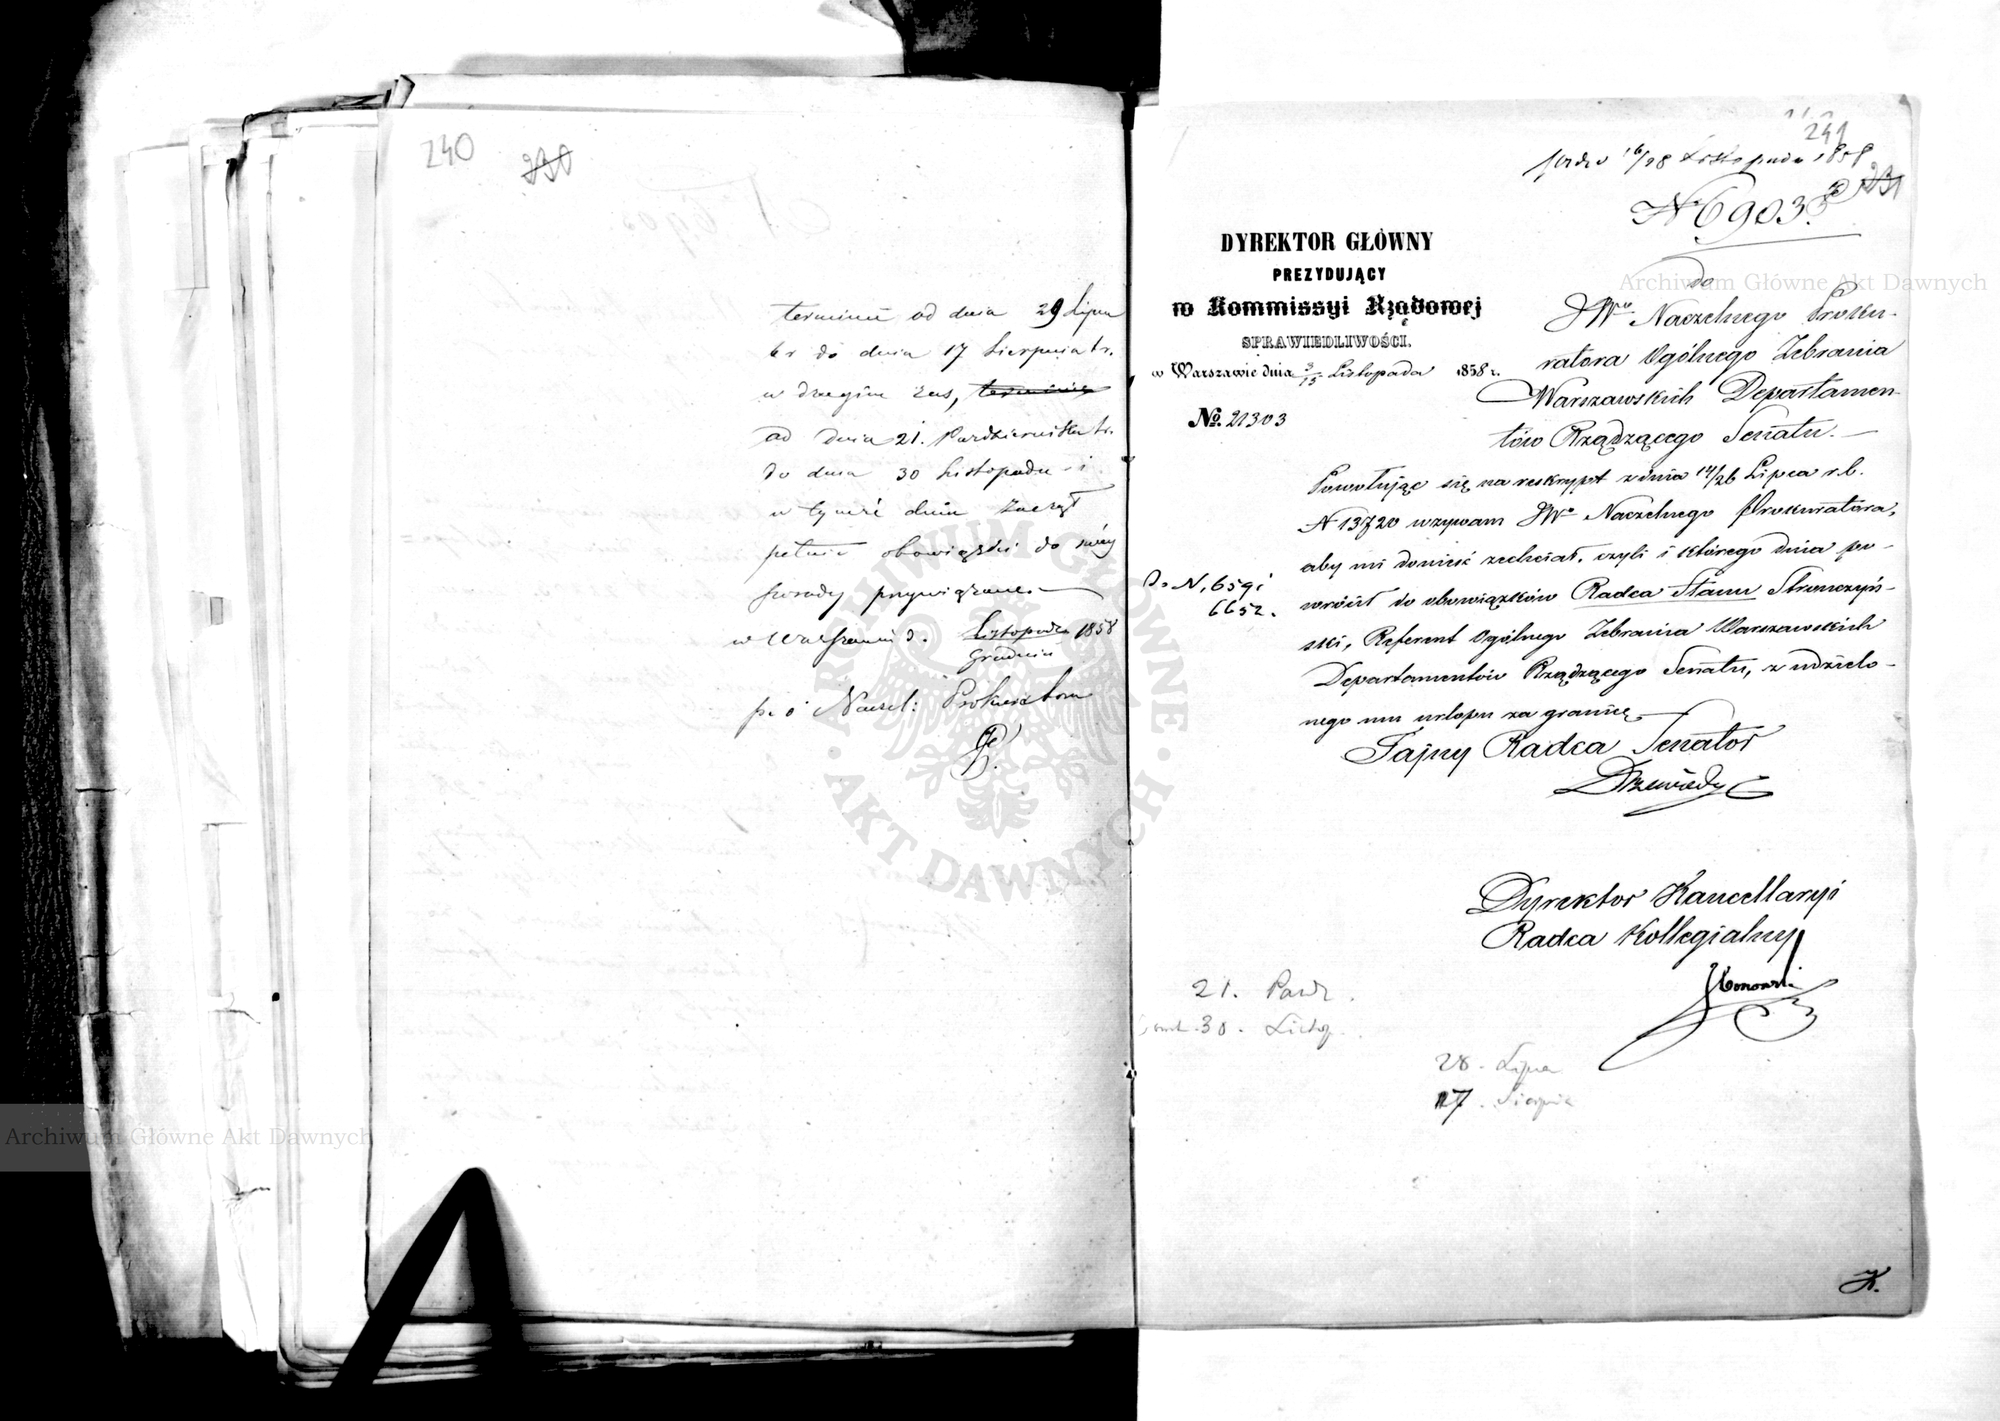 240
230
terminu od dnia 29 Lipca
br do dnia 17 Sierpnia br.
w drugim zaś, terminie
od dnia 21. Października br.
do dnia 30 Listopada i
w tymże dniu zaczął
pełnić obowiązki do swéj
posady przywiązane.
w Warszawie d. Listopada 1858
Grudnia
p. o Naczel: Prokuratora
241
16/28 Listopada 1858
231
N 6903.
DYREKTOR GŁÓWNY
PREZYDUJĄCY
w Kommissyi Rządowej
SPRAWIEDLIWOŚCI.
w Warszawie dnia 3/15 Listopada 1858 r.
No. 21303
do
JWo Naczelnego Proku-
ratora Ogólnego Zebrania
Warszawskich Departamen-
tów Rządzącego Senatu.
Powołując się na reskrypt z dnia 14/26 Lipca r.b.
N 13720 wzywam JWo Naczelnego Prokuratora,
aby mi donieść zechciał, czyli i którego dnia po-
wrócił do obowiązków Radca Stanu Stronczyń-
ski, Referent Ogólnego Zebrania Warszawskich
Departamentów Rządzącego Senatu, z udzielo-
nego mu urlopu za granicę
Do N. 6591
6652.
Tajny Radca Senator
Drzewiecki
Dyrektor Kancellaryi
Radca Kollegialny
21. Paźdz.
30. Listop.
28. Lipca
17. Sierpnia
Archiwum Główne Akt Dawnych
Archiwum Główne Akt Dawnych
ARCHIWUM GŁÓWNE · AKT DAWNYCH ·